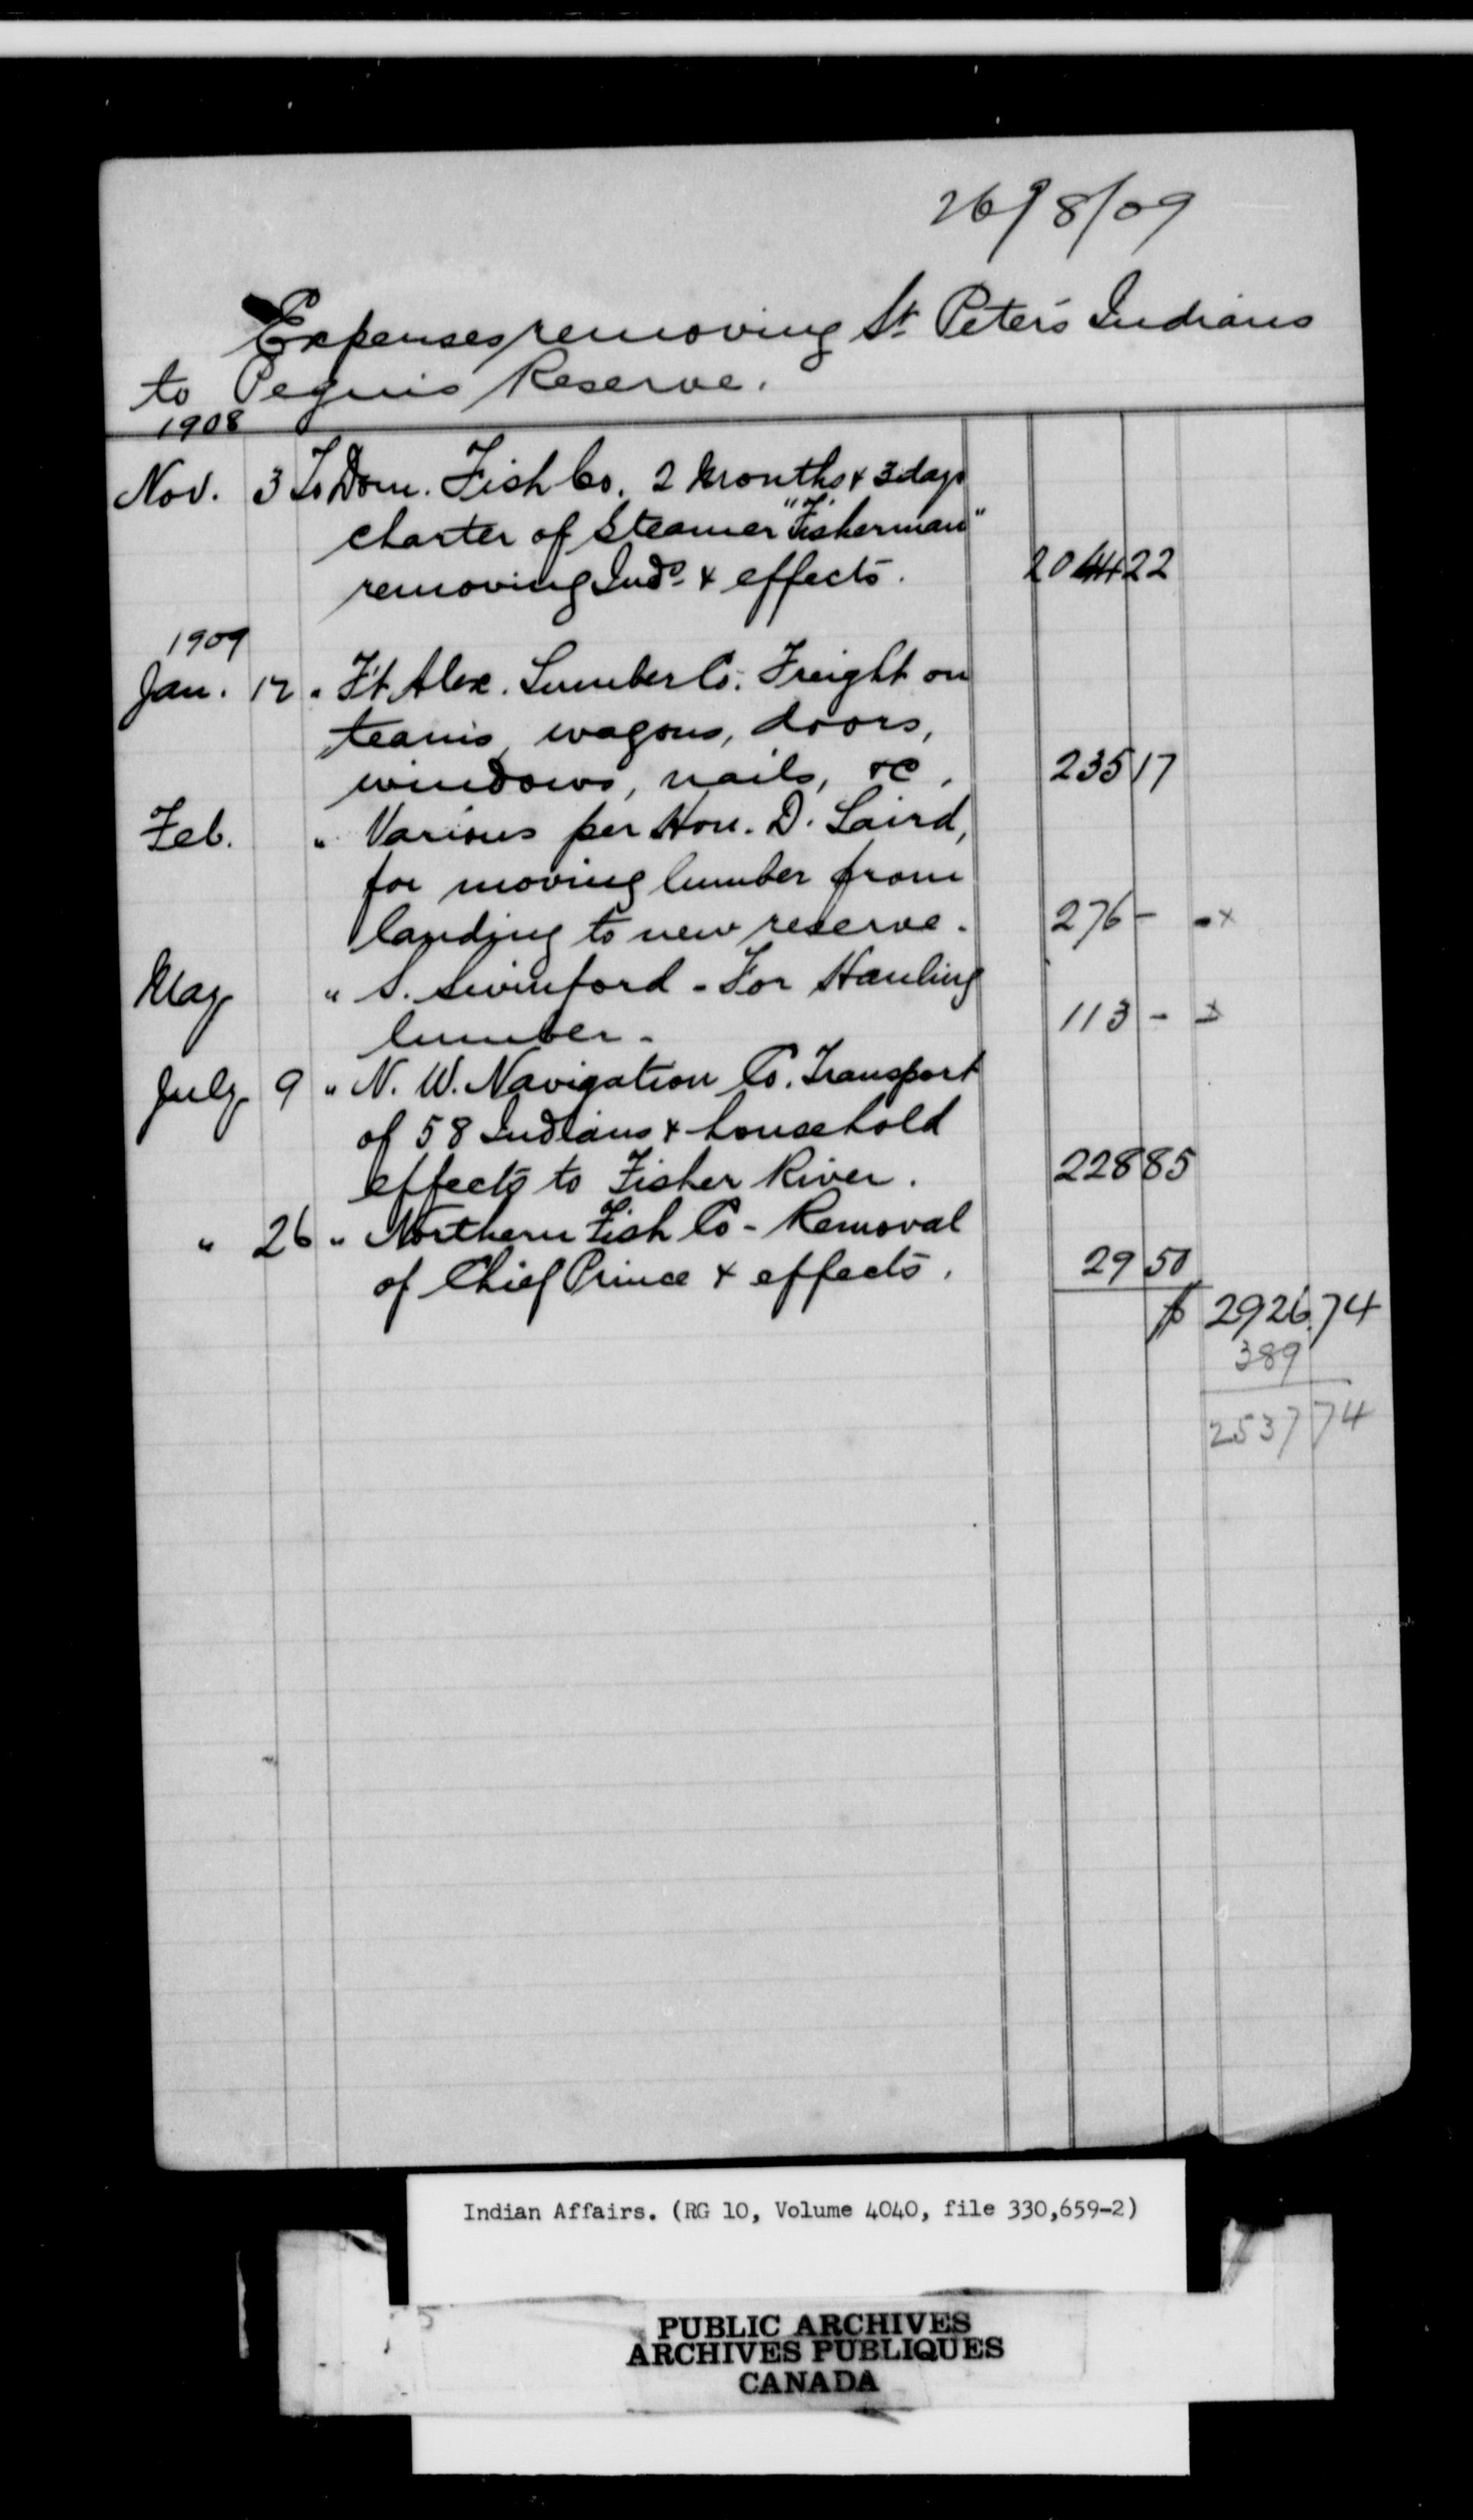 26/8/09
Expenses removing St. Peter's Indians
to Peguis Reserve.
1908
Nov. 3 To Dom. Fish Co. 2 Months & 3 days
charter of Steamer "Fisherman"
removing Inds. & effects. 2044 22
1909
Jan. 12 " Ft. Alex. Lumber Co. Freight on
teams, wagons, doors,
windows, nails, &c. 235 17
Feb. " Various per Hon. D. Laird,
for moving lumber from
landing to new reserve. 276 - x
May " S. Swinford - For Hauling
lumber - 113 - x
July 9 " N. W. Navigation Co. Transport
of 58 Indians & household
effects to Fisher River. 228 85
" 26 " Northern Fish Co - Removal
of Chief Prince & effects. 29 50
$ 2926.74
389
2537 74
Indian Affairs. (RG 10, Volume 4040, file 330,659-2)
PUBLIC ARCHIVES
ARCHIVES PUBLIQUES
CANADA